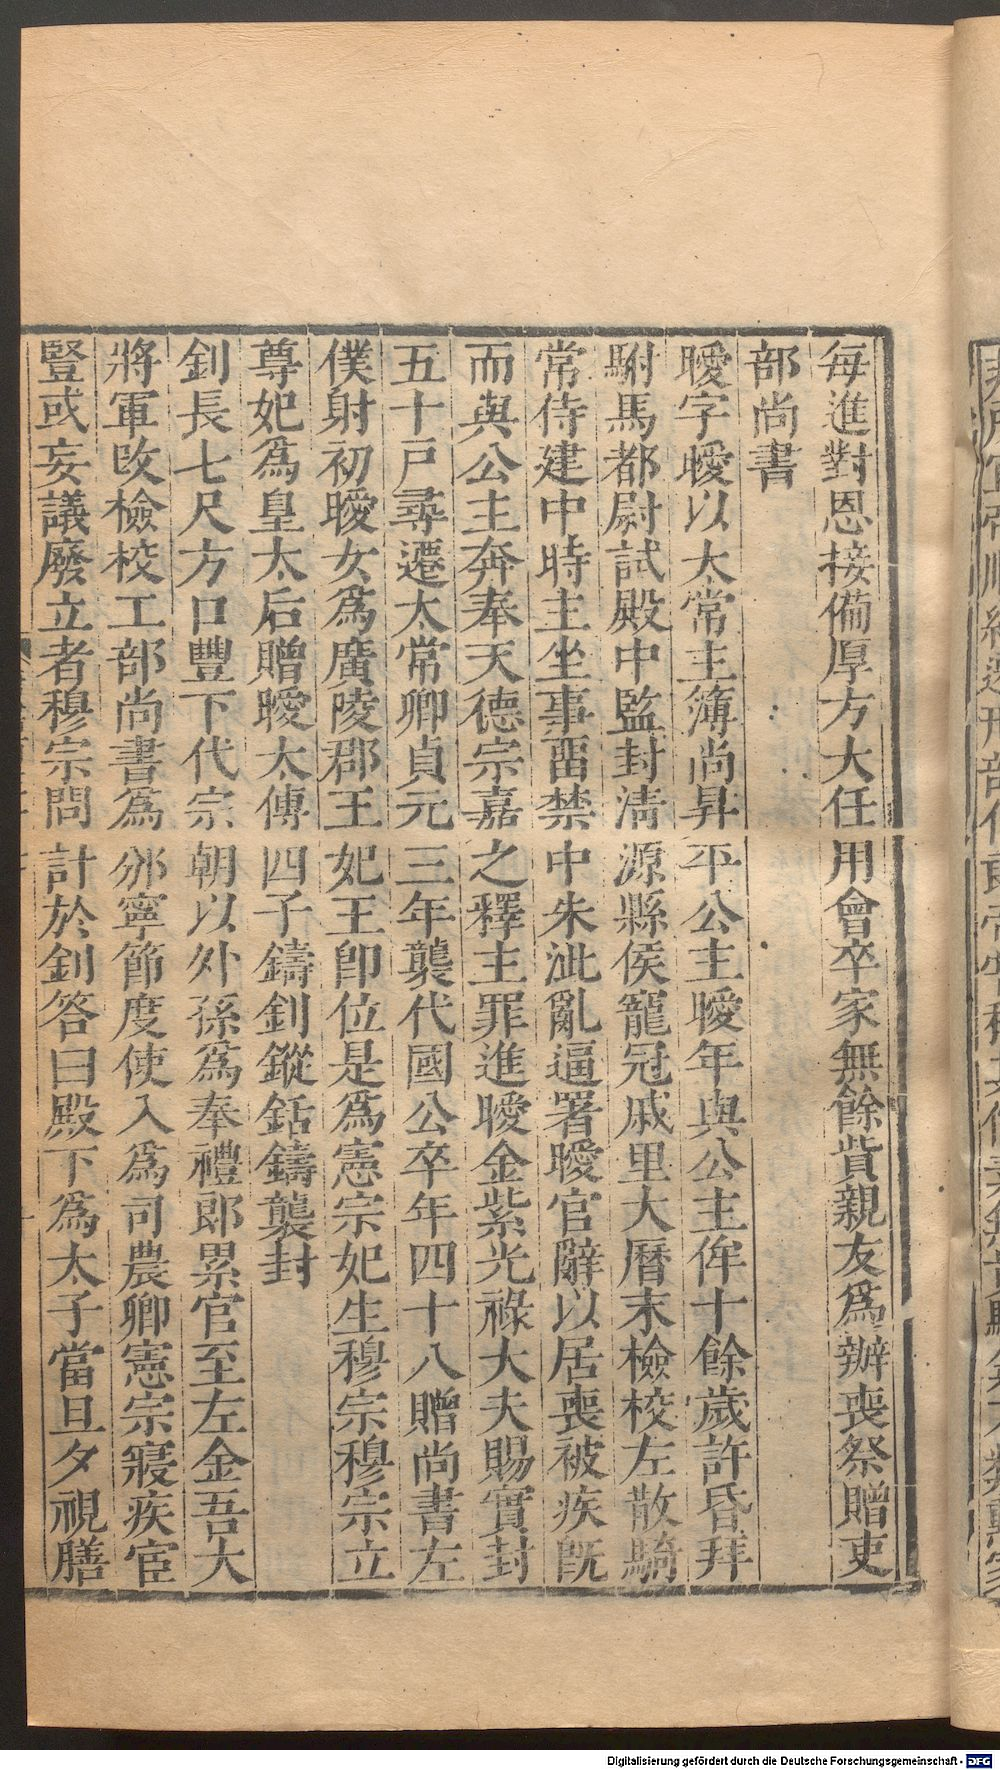 每進對恩接備厚方大任用會卒家無餘貲親友爲辦喪祭贈吏
部尚書
曖字曖以太常主簿尚昇平公主曖年與公主侔十餘歲許昏拜
駙馬都尉試殿中監封淸源縣侯寵冠戚里大曆末檢校左散騎
常侍建中時主坐事畱禁中朱泚亂逼署曖官辭以居喪被疾旣
而與公主奔奉天德宗嘉之釋主罪進曖金紫光祿大夫賜實封
五十戸尋遷太常卿貞元三年襲代國公卒年四十八贈尚書左
僕射初曖女爲廣陵郡王妃王卽位是爲憲宗妃生穆宗穆宗立
尊妃爲皇太后贈曖太傅四子鑄釗鏦銛鑄襲封
釗長七尺方口豐下代宗朝以外孫爲奉禮郎累官至左金吾大
將軍改檢校工部尚書爲邠寧節度使入爲司農卿憲宗寢疾宦
豎或妄議廢立者穆宗問計於釗答曰殿下爲太子當旦夕視膳
Digitalisierung gefördert durch die Deutsche Forschungsgemeinschaft - DFG